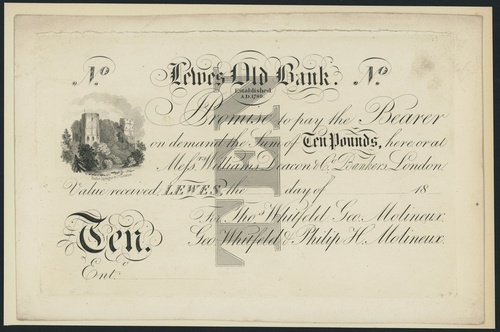 No Lewes Old Bank. No
Established
A.D. 1789
I Promise to pay the Bearer
on demand the Sum of Ten Pounds, here, or at
Messrs Williams Deacon & Co. Bankers London
Value received, LEWES, the day of 18
For Thos Whitfeld Geo. Molineux
Ten. Geo. Whitfeld & Philip H. Molineux.
Ent.